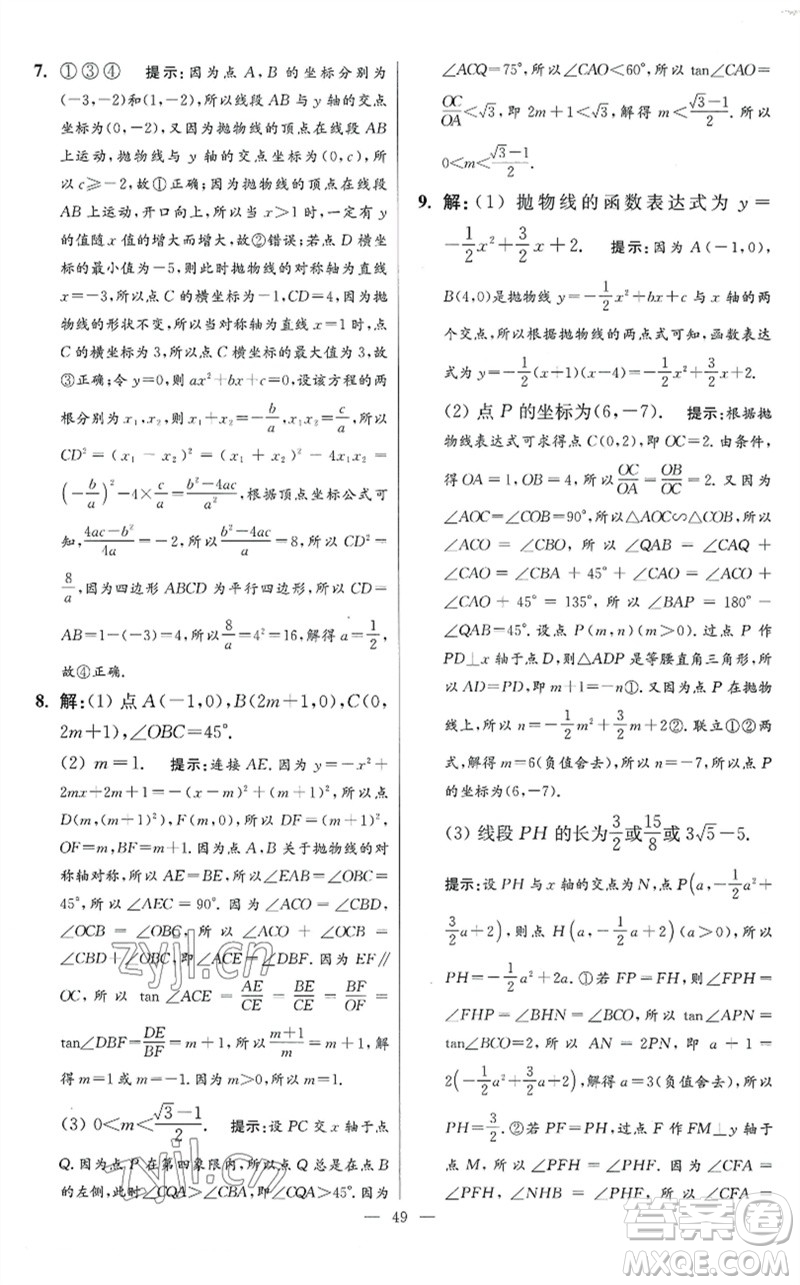 7. ①③④ 提示:因为点 A,B 的坐标分别为
(-3,-2)和(1,-2),所以线段 AB 与 y 轴的交点
坐标为(0,-2),又因为抛物线的顶点在线段
AB 上运动,抛物线与 y 轴的交点坐标为(0,c),所以
c≥-2,故①正确;因为抛物线的顶点在线段
AB 上运动,开口向上,所以当 x>1 时,一定有 y
的值随 x 值的增大而增大,故②错误;若点 D 横坐
标的最小值为-5,则此时抛物线的对称轴为直线
x=-3,所以点 C 的横坐标为-1,CD=4,因为抛
物线的形状不变,所以当对称轴为直线 x=1 时,点
C 的横坐标为 3,所以点 C 的横坐标的最大值为 3,故
③正确;令 y=0,则 ax²+bx+c=0,设该方程的两
根分别为 x₁,x₂,则 x₁+x₂=-b/a,x₁x₂=c/a,所以
CD²=(x₁-x₂)²=(x₁+x₂)²-4x₁x₂=
(-b/a)²-4×c/a=(b²-4ac)/a²,根据顶点坐标公式可
知,(4ac-b²)/4a=-2,所以(b²-4ac)/a=8,所以 CD²=
8/a,因为四边形 ABCD 为平行四边形,所以 CD=
AB=1-(-3)=4,所以8/a=4²=16,解得 a=1/2,
故④正确.
8. 解:(1) 点 A(-1,0),B(2m+1,0),C(0,
2m+1),∠OBC=45°.
(2) m=1. 提示:连接 AE.因为 y=-x²+
2mx+2m+1=-(x-m)²+(m+1)²,所以点
D(m,(m+1)²),F(m,0),所以 DF=(m+1)²,
OF=m,BF=m+1.因为点 A,B 关于抛物线的对
称轴对称,所以 AE=BE,所以∠EAB=∠OBC=
45°,所以∠AEC=90°.因为∠ACO=∠CBD,
∠OCB=∠OBC,所以∠ACO+∠OCB=
∠CBD+∠OBC,即∠ACE=∠DBF.因为 EF∥
OC,所以 tan∠ACE=AE/CE=BE/CE=BF/OF=
tan∠DBF=DE/BF=m+1,所以(m+1)/m=m+1,解
得 m=1或 m=-1.因为 m>0,所以 m=1.
(3) 0<m<(√3-1)/2. 提示:设 PC 交 x 轴于点
Q.因为点 P 在第四象限内,所以点 Q 总是在点 B
的左侧,此时∠CQA>∠CBA,即∠CQA>45°.因为
∠ACQ=75°,所以∠CAO<60°,所以 tan∠CAO=
OC/OA<√3,即 2m+1<√3,解得 m<(√3-1)/2.所以
0<m<(√3-1)/2.
9. 解:(1) 抛物线的函数表达式为 y=
-1/2x²+3/2x+2. 提示:因为 A(-1,0),
B(4,0)是抛物线 y=-1/2x²+bx+c 与 x 轴的两
个交点,所以根据抛物线的两点式可知,函数表达
式为 y=-1/2(x+1)(x-4)=-1/2x²+3/2x+2.
(2) 点 P 的坐标为(6,-7). 提示:根据抛
物线表达式可求得点 C(0,2),即 OC=2.由条件,
得 OA=1,OB=4,所以OC/OA=OB/OC=2.又因为
∠AOC=∠COB=90°,所以△AOC∽△COB,所以
∠ACO=∠CBO,所以∠QAB=∠CAQ+
∠CAO=∠CBA+45°+∠CAO=∠ACO+
∠CAO+45°=135°,所以∠BAP=180°-
∠QAB=45°.设点 P(m,n)(m>0).过点 P 作
PD⊥x 轴于点 D,则△ADP 是等腰直角三角形,所
以 AD=PD,所以 m+1=-n①.又因为点 P 在抛物
线上,所以 n=-1/2m²+3/2m+2②.联立①②两
式,解得 m=6(负值舍去),此时 n=-7,所以点 P
的坐标为(6,-7).
(3) 线段 PH 的长为3/2或15/8或 3√5-5.
提示:设 PH 与 x 轴的交点为 N,点 P(a,-1/2a²+
3/2a+2),则点 H(a,-1/2a+2)(a>0),所以
PH=-1/2a²+2a.①若 FP=FH,则∠FPH=
∠FHP=∠BHN=∠BCO,所以 tan∠APN=
tan∠BCO=2,所以 AN=2PN,即 a+1=
2(-1/2a²+3/2a+2),解得 a=3(负值舍去),所以
PH=3/2.②若 PF=PH,过点 F 作 FM⊥y 轴于
点 M,所以∠PFH=∠PHF.因为∠CFA=
∠PFH,∠NHB=∠PHF,所以∠CFA=
49
zyjl.cn
zyjl.cn
答案圈
MXQE.COM